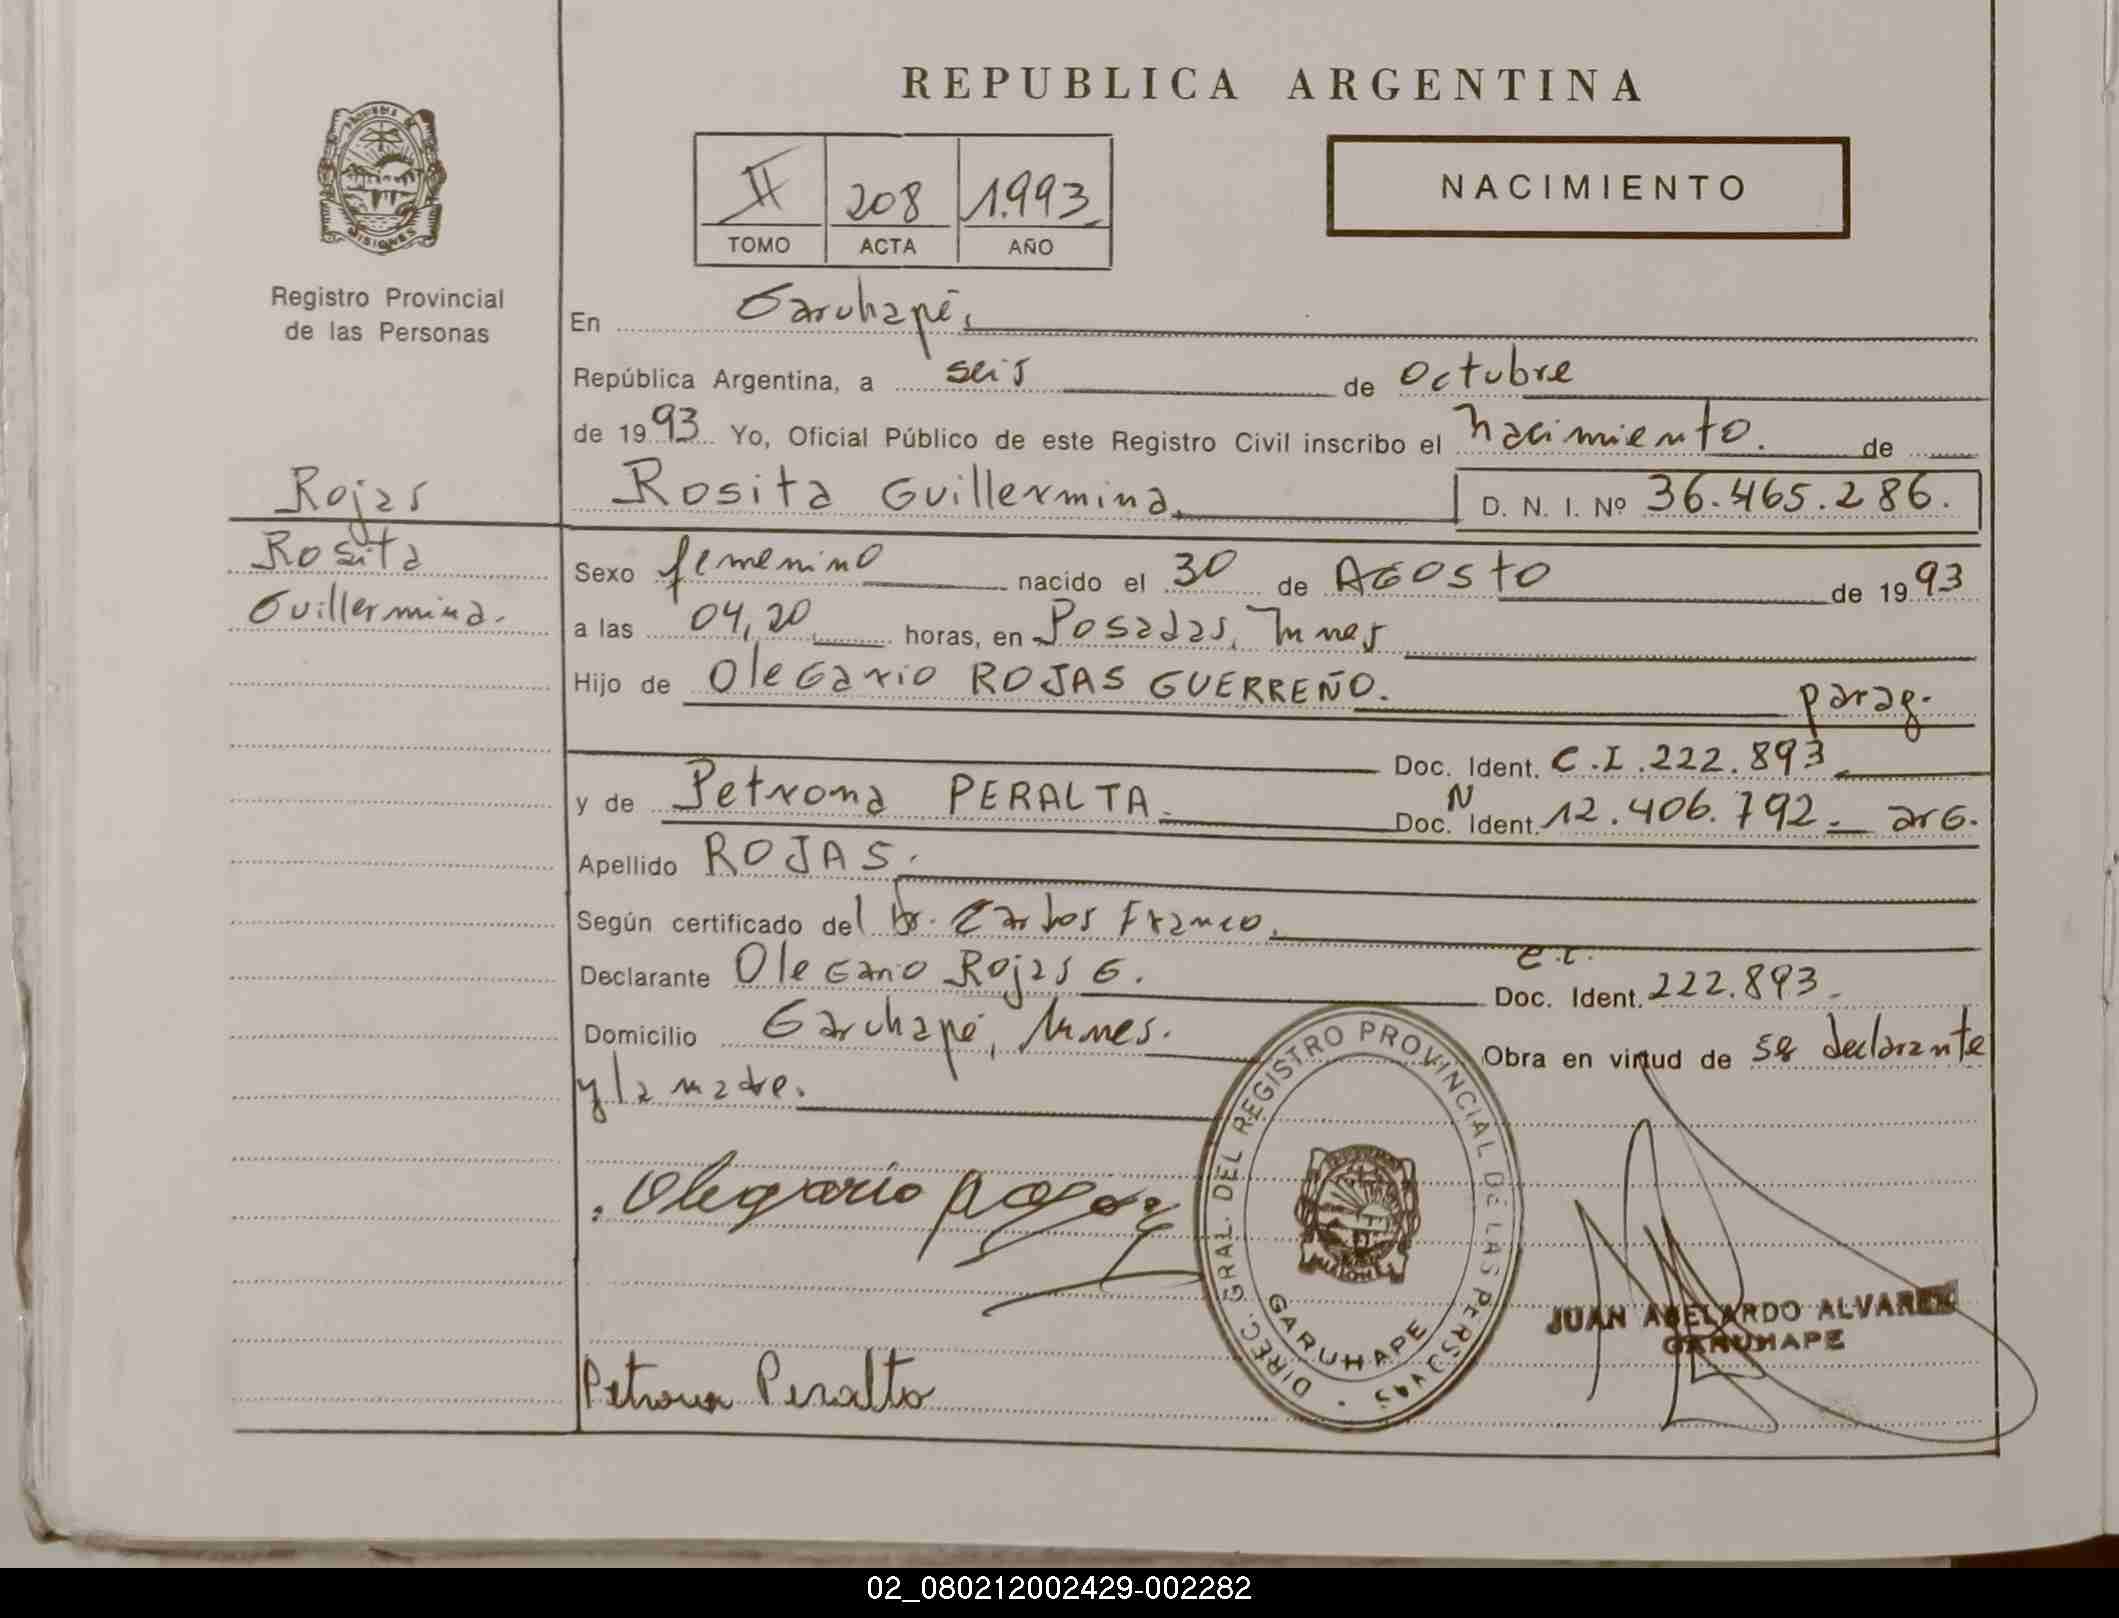 REPUBLICA ARGENTINA
II 208 1.993
TOMO ACTA AÑO
NACIMIENTO
MISIONES
Registro Provincial
de las Personas
Rojas
Rosita
Guillermina.
En Garuhapé,
República Argentina, a seis de Octubre
de 1993 Yo, Oficial Público de este Registro Civil inscribo el nacimiento. de
Rosita Guillermina. D. N. I. Nº 36.465.286.
Sexo femenino nacido el 30 de AGOSTO de 1993
a las 04,20 horas, en Posadas, Mnes
Hijo de Olegario ROJAS GUERREÑO. parag.
Doc. Ident. C.I.222.893
y de Petrona PERALTA. Doc. N Ident. 12.406.792. arg.
Apellido ROJAS.
Según certificado del Dr. Carlos Franco.
Declarante Olegario Rojas G. Doc. Ident. C.I. 222.893.
Domicilio Garuhapé, Mnes. Obra en virtud de ser declarante
y la madre.
Olegario Rojas
Petrona Peralta
DIREC. GRAL. DEL REGISTRO PROVINCIAL DE LAS PERSONAS
GARUHAPE
JUAN ABELARDO ALVAREZ
GARUHAPE
02_080212002429-002282